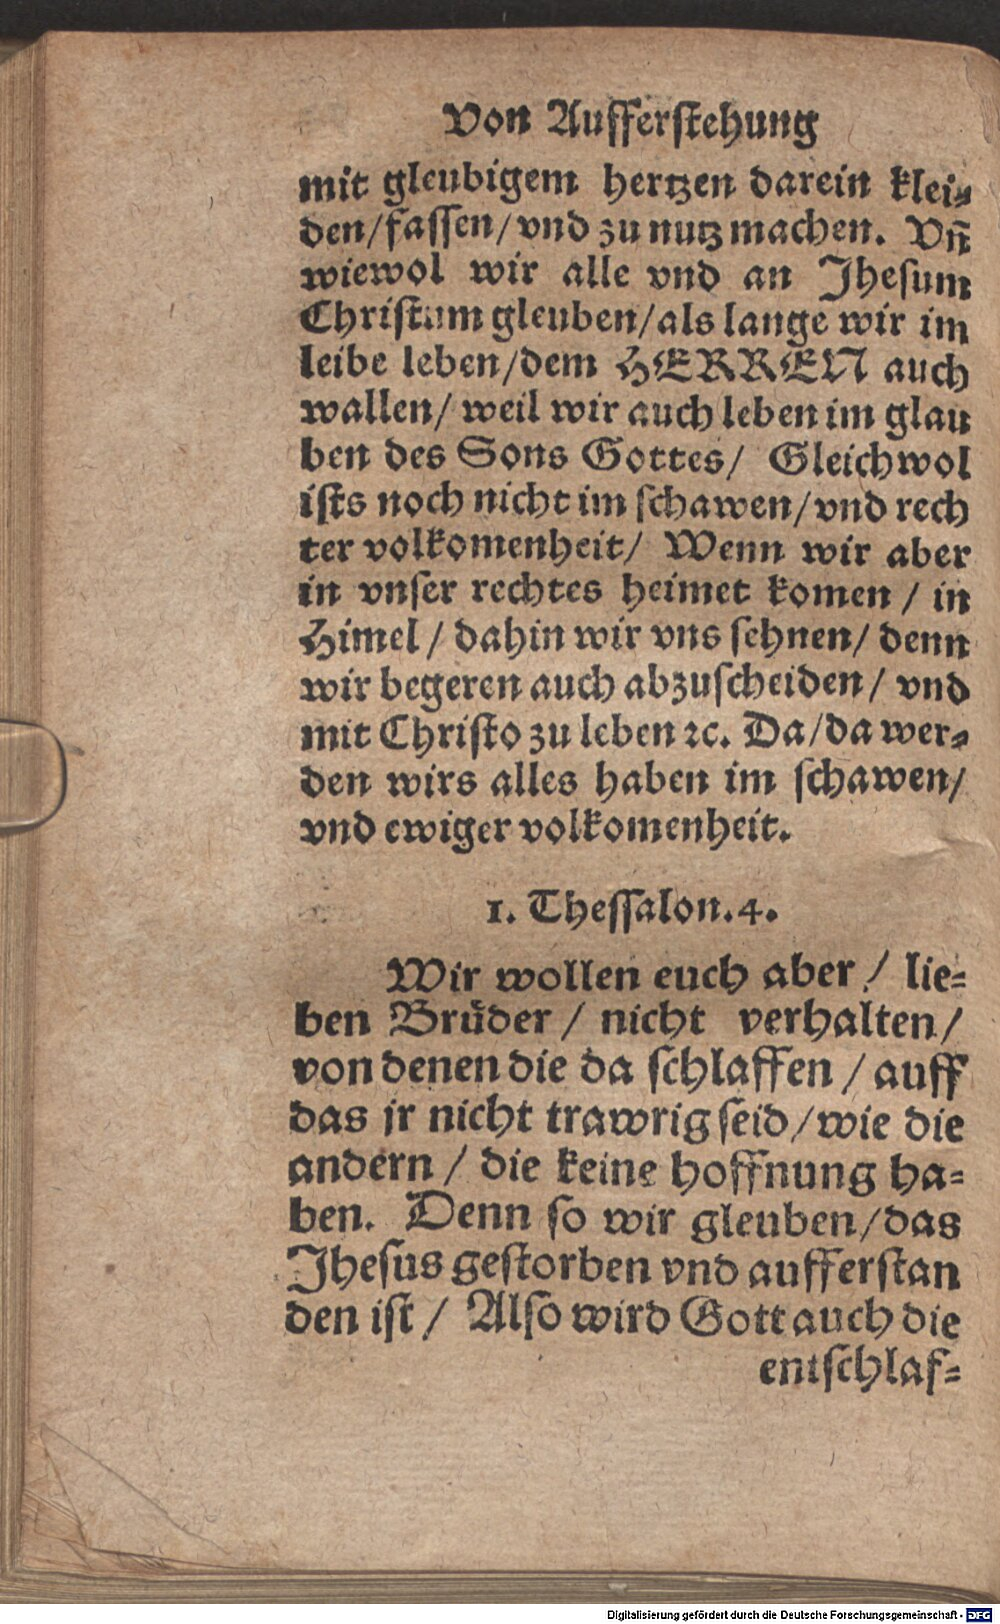 Von Aufferſtehung
mit gleubigem hertzen darein klei⸗
den/faſſen/vnd zu nutz machen. Vñ
wiewol wir alle vnd an Jheſum
Chriſtum gleuben/als lange wir im
leibe leben/dem HERREN auch
wallen/ weil wir auch leben im glau
ben des Sons Gottes/ Gleichwol
iſts noch nicht im ſchawen/vnd rech
ter volkomenheit/ Wenn wir aber
in vnſer rechtes heimet komen / in
Himel / dahin wir vns ſehnen/ denn
wir begeren auch abzuſcheiden/ vnd
mit Chriſto zu leben ꝛc. Da/da wer⸗
den wirs alles haben im ſchawen/
vnd ewiger volkomenheit.
1. Theſſalon.4.
Wir wollen euch aber / lie⸗
ben Bruͤder / nicht verhalten/
von denen die da ſchlaffen / auff
das jr nicht trawrig ſeid/wie die
andern / die keine hoffnung ha⸗
ben. Denn ſo wir gleuben/das
Jheſus geſtorben vnd aufferſtan
den iſt / Alſo wird Gott auch die
entſchlaf⸗
Digitalisierung gefördert durch die Deutsche Forschungsgemeinschaft - DFG